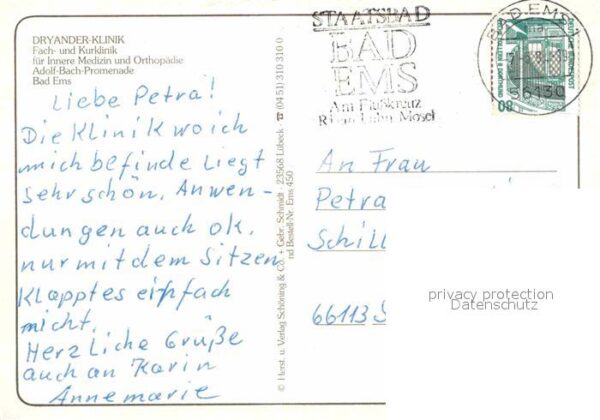 DRYANDER-KLINIK
Fach- und Kurklinik
für Innere Medizin und Orthopädie
Adolf-Bach-Promenade
Bad Ems
Liebe Petra!
Die Klinik wo ich
mich befinde liegt
sehr schön. Anwen-
dungen auch ok.
nur mit dem Sitzen
klappt es einfach
nicht.
Herzliche Grüße
auch an Karin
Annemarie
© Herst. u. Verlag Schöning & Co. + Gebr. Schmidt · 23568 Lübeck · ☎ (04 51) 310 310 0
nd Bestell-Nr. Ems 450
STAATSBAD
BAD
EMS
Am Flußkreuz
Rhein Lahn Mosel
BAD EMS 1
56130
80
DEUTSCHE BUNDESPOST
An Frau
Petra
Schill
66113 S
privacy protection
Datenschutz